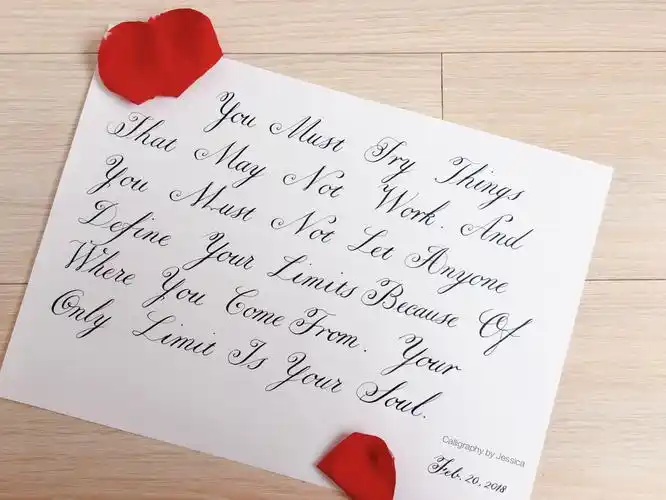 You Must Try Things
That May Not Work. And
You Must Not Let Anyone
Define Your Limits Because Of
Where You Come From. Your
Only Limit Is Your Soul.
Calligraphy by Jessica
Feb. 20, 2018